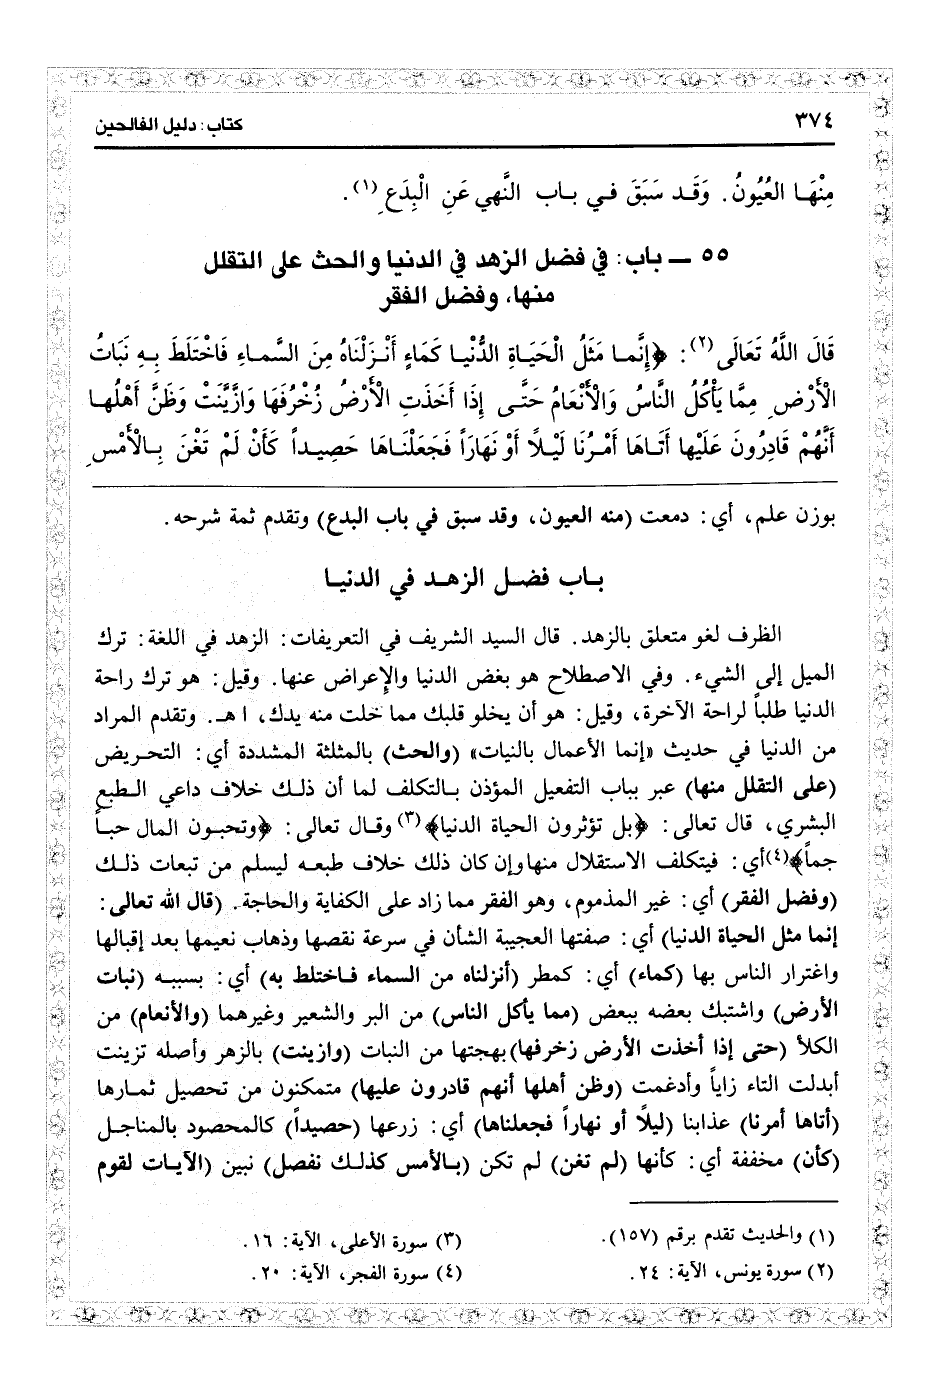 ٣٧٤
كتاب: دليل الفالحين
مِنْهَا العُيُونُ. وَقَد سَبَقَ في باب النَّهي عَنِ الْبِدَعِ (١).
٥٥ ــ باب: في فضل الزهد في الدنيا والحث على التقلل
منها، وفضل الفقر
قَالَ اللَّهُ تَعَالَى(٢): ﴿إِنَّما مَثَلُ الْحَيَاةِ الدُّنْيا كَمَاءٍ أَنْزَلْنَاهُ مِنَ السَّماءِ فَاخْتَلَطَ بِهِ نَبَاتُ
الْأَرْضِ مِمَّا يَأْكُلُ النَّاسُ وَالْأَنْعَامُ حَتَّى إِذَا أَخَذَتِ الْأَرْضُ زُخْرُفَهَا وَازَّيَّنَتْ وَظَنَّ أَهْلُها
أَنَّهُمْ قَادِرُونَ عَلَيْها أَتَاهَا أَمْرُنَا لَيْلاً أَوْ نَهَاراً فَجَعَلْنَاهَا حَصِيداً كَأَنْ لَمْ تَغْنَ بِالْأَمْسِ
بوزن علم، أي: دمعت (منه العيون، وقد سبق في باب البدع) وتقدم ثمة شرحه.
باب فضل الزهد في الدنيا
الظرف لغو متعلق بالزهد. قال السيد الشريف في التعريفات: الزهد في اللغة: ترك
الميل إلى الشيء. وفي الاصطلاح هو بغض الدنيا والإعراض عنها. وقيل: هو ترك راحة
الدنيا طلباً لراحة الآخرة، وقيل: هو أن يخلو قلبك مما خلت منه يدك، ا هـ. وتقدم المراد
من الدنيا في حديث «إنما الأعمال بالنيات» (والحث) بالمثلثة المشددة أي: التحريض
(على التقلل منها) عبر بباب التفعيل المؤذن بالتكلف لما أن ذلك خلاف داعي الطبع
البشري، قال تعالى: ﴿بل تؤثرون الحياة الدنيا﴾(٣) وقال تعالى: ﴿وتحبون المال حباً
جماً﴾(٤)أي: فيتكلف الاستقلال منها وإن كان ذلك خلاف طبعه ليسلم من تبعات ذلك
(وفضل الفقر) أي: غير المذموم، وهو الفقر مما زاد على الكفاية والحاجة. (قال الله تعالى:
إنما مثل الحياة الدنيا) أي: صفتها العجيبة الشأن في سرعة نقصها وذهاب نعيمها بعد إقبالها
واغترار الناس بها (كماء) أي: كمطر (أنزلناه من السماء فاختلط به) أي: بسببه (نبات
الأرض) واشتبك بعضه ببعض (مما يأكل الناس) من البر والشعير وغيرهما (والأنعام) من
الكلأ (حتى إذا أخذت الأرض زخرفها)بهجتها من النبات (وازينت) بالزهر وأصله تزينت
أبدلت التاء زاياً وأدغمت (وظن أهلها أنهم قادرون عليها) متمكنون من تحصيل ثمارها
(أتاها أمرنا) عذابنا (ليلاً أو نهاراً فجعلناها) أي: زرعها (حصيداً) كالمحصود بالمناجل
(كأن) مخففة أي: كأنها (لم تغن) لم تكن (بالأمس كذلك نفصل) نبين (الآيات لقوم
(١) والحديث تقدم برقم (١٥٧).
(٢) سورة يونس، الآية: ٢٤.
(٣) سورة الأعلى، الآية: ١٦.
(٤) سورة الفجر، الآية: ٢٠.